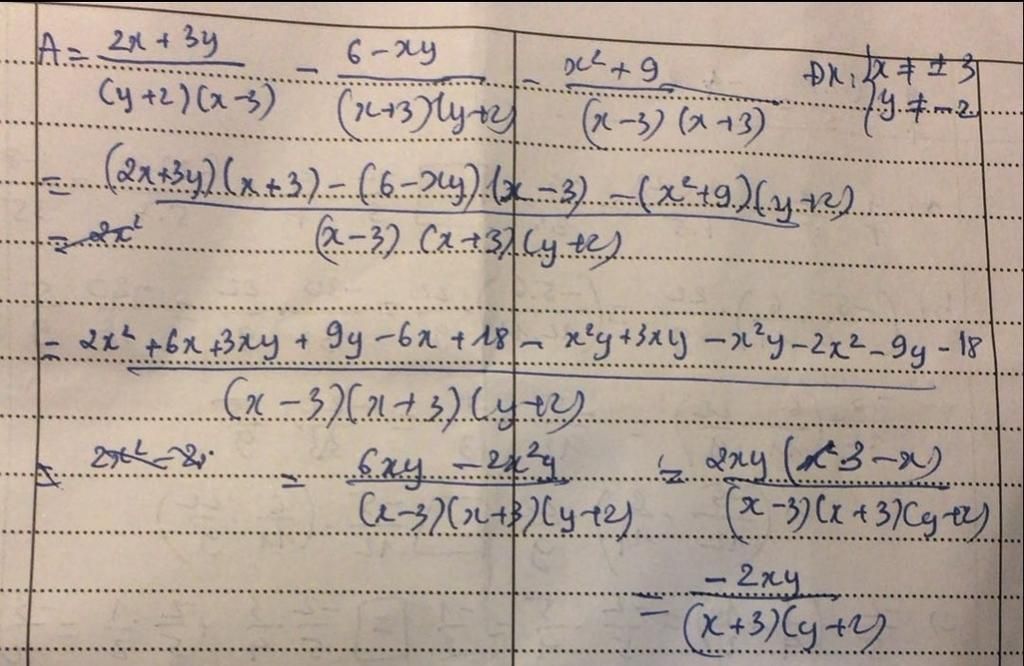 A = (2x + 3y)/((y+2)(x-3)) - (6-xy)/((x+3)(y+2)) - (x²+9)/((x-3)(x+3)) ĐK: { x ≠ ± 3 { y ≠ -2
= ((2x+3y)(x+3) - (6-xy)(x-3) - (x²+9)(y+2))/((x-3)(x+3)(y+2))
= 2x²
= (2x² + 6x + 3xy + 9y - 6x + 18 - x²y + 3xy - x²y - 2x² - 9y - 18)/((x-3)(x+3)(y+2))
= 2x² - 2 = (6xy - 2x²y)/((x-3)(x+3)(y+2)) = (2xy(3-x))/((x-3)(x+3)(y+2))
= (-2xy)/((x+3)(y+2))